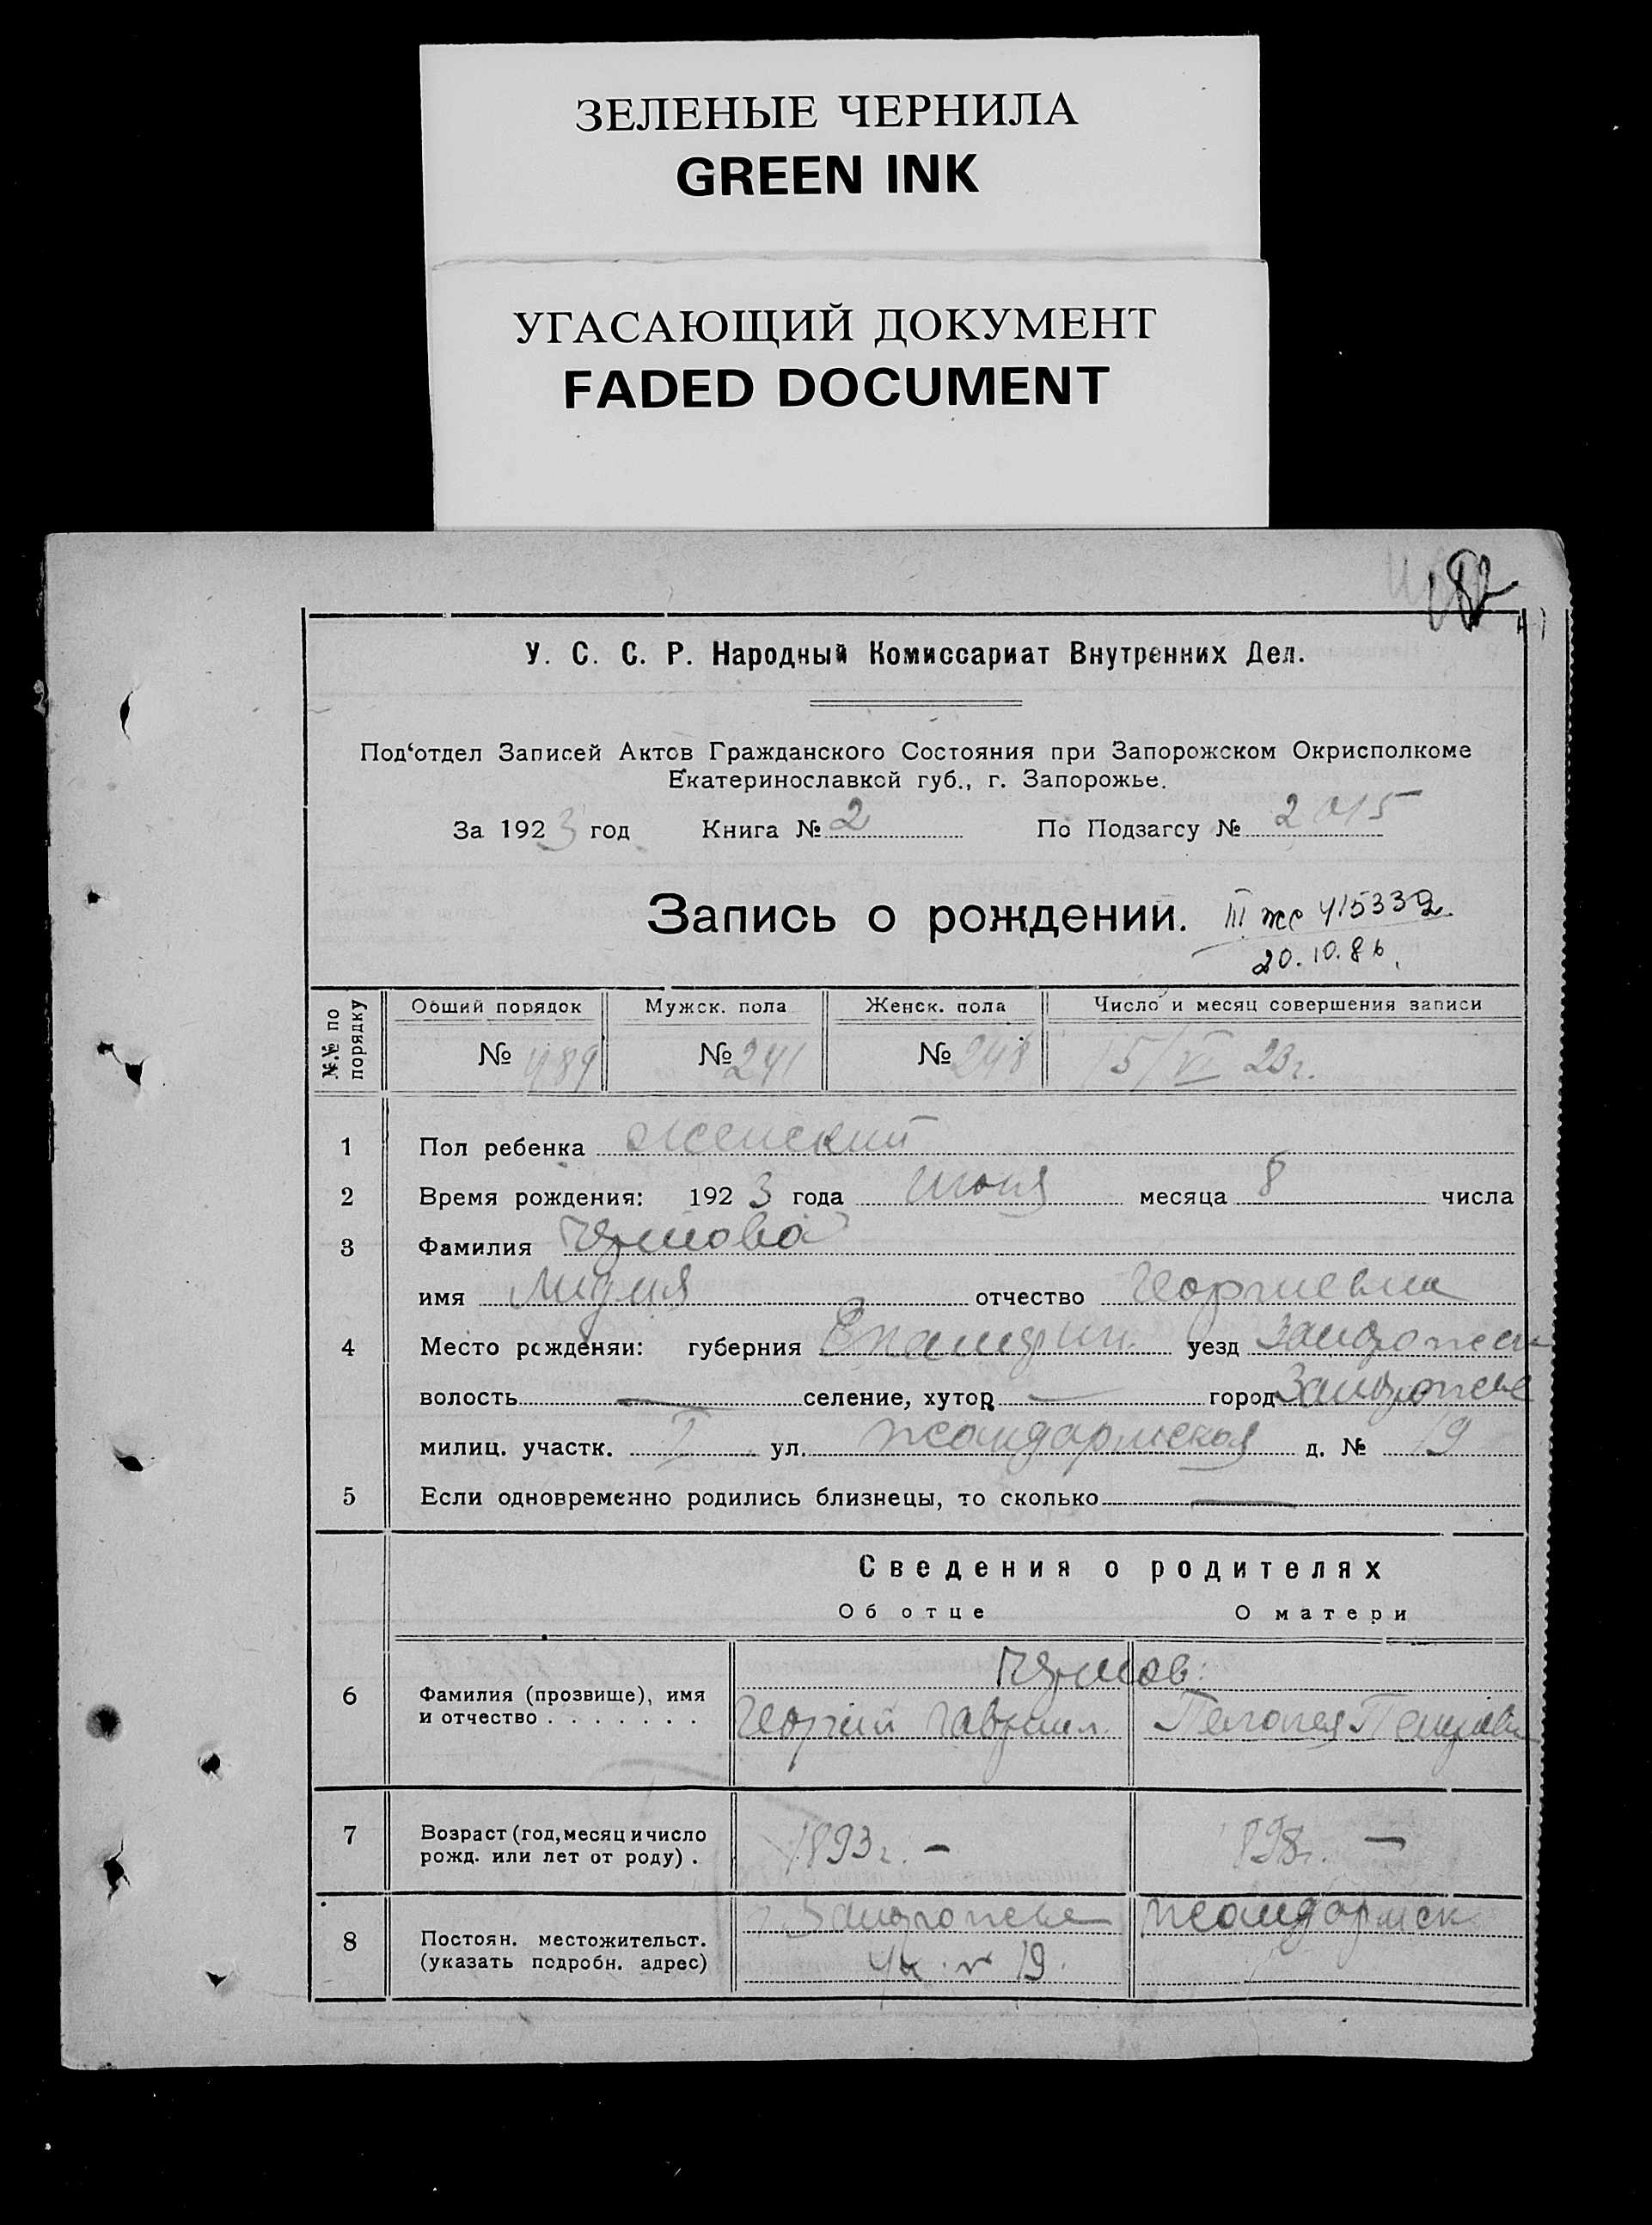 ЗЕЛЕНЫЕ ЧЕРНИЛА
GREEN INK
УГАСАЮЩИЙ ДОКУМЕНТ
FADED DOCUMENT
182
У. С. С. Р. Народный Комиссариат Внутренних Дел.
Под‘отдел Записей Актов Гражданского Состояния при Запорожском Окрисполкоме
Екатеринославкой губ., г. Запорожье.
За 1923 год Книга № 2 По Подзагсу № 2015
Запись о рождении. III жс 415332
20.10.86.
№№ по порядку Общий порядок Мужск. пола Женск. пола Число и месяц совершения записи
№ 489 № 241 № 248 15/VI 23г.
1 Пол ребенка женский
2 Время рождения: 1923 года июня месяца 8 числа
3 Фамилия
имя Лидия отчество Георгиевна
4 Место рожденяи: губерния уезд Запорожск
волость — селение, хутор — город Запорожье
милиц. участк. I ул. Жандармская д. № 19
5 Если одновременно родились близнецы, то сколько —
Сведения о родителях
Об отце О матери
6 Фамилия (прозвище), имя
и отчество . . . . . . . Георгий Гавриил. Пелагея
7 Возраст (год, месяц и число
рожд. или лет от роду) . 1893г. — 1898г. —
8 Постоян. местожительст.
(указать подробн. адрес) Запорожье Жандармск
19.